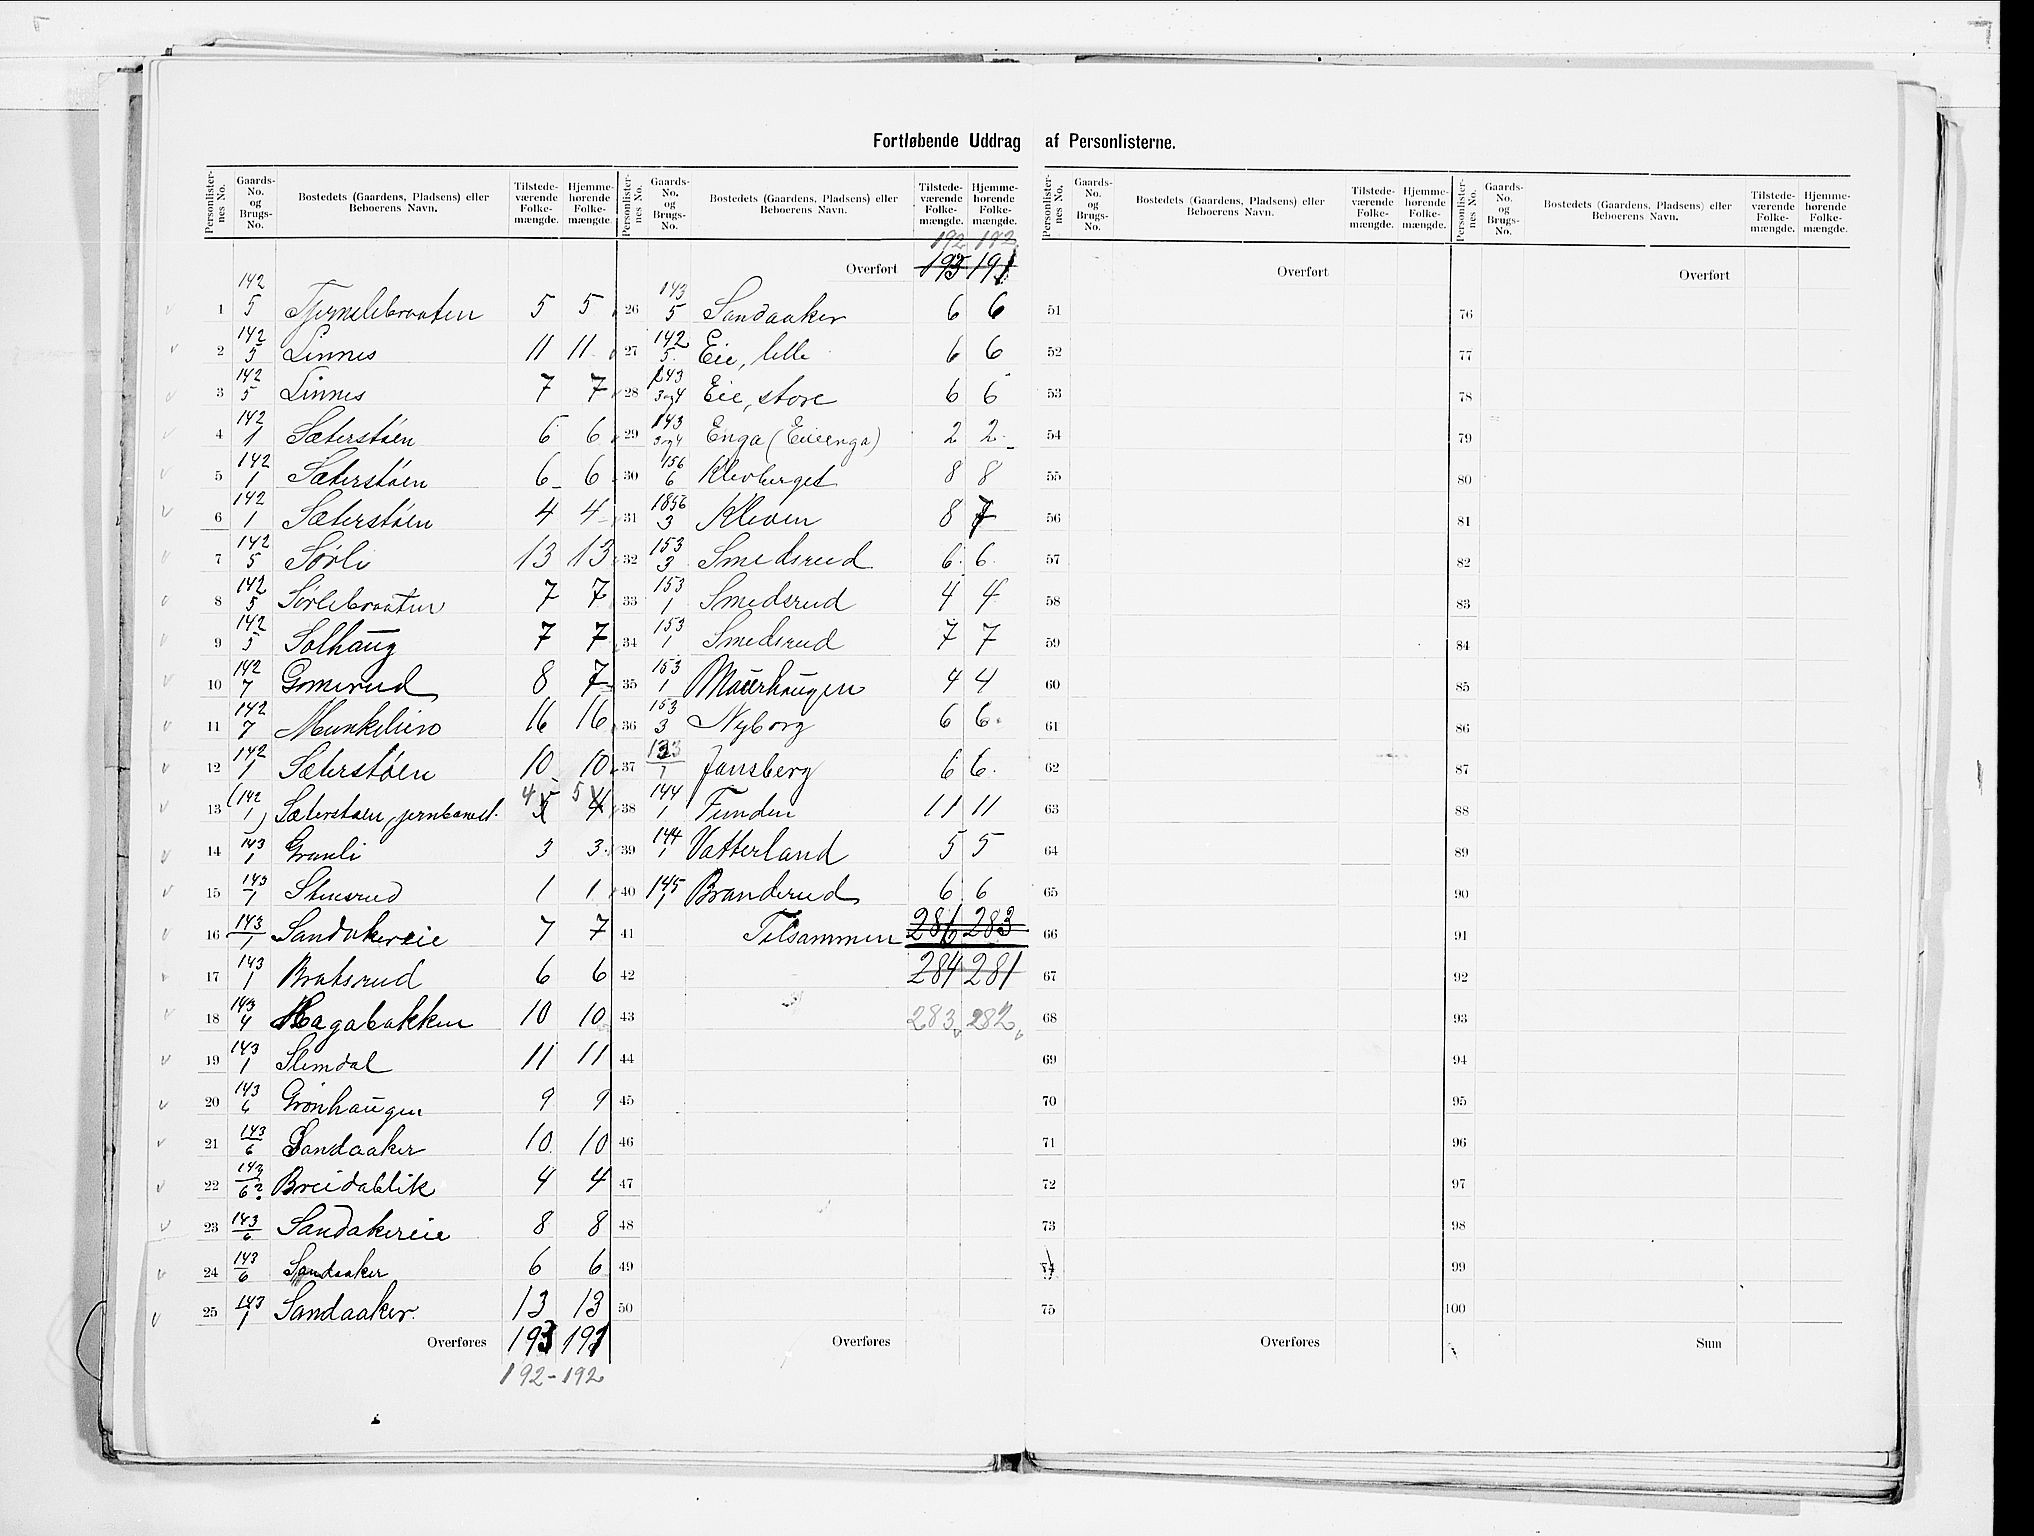 Fortløbende Uddrag af Personlisterne.
Personlister-nes No. Gaards-No. og Brugs-No. Bostedets (Gaardens, Pladsens) eller Beboerens Navn. Tilstede-værende Folke-mængde. Hjemme-hørende Folke-mængde.
1 142/5 Tjernslibraaten 5 5
2 142/5 Linnes 11 11
3 142/5 Linnes 7 7
4 142/1 Sæterstøen 6 6
5 142/1 Sæterstøen 6 6
6 142/1 Sæterstøen 4 4
7 142/5 Sørli 13 13
8 142/5 Sørlibraaten 7 7
9 142/5 Solhaug 7 7
10 142/7 Gomerud 8 7
11 142/7 16 16
12 142/1 Sæterstøen 10 10
13 (142/1) Sæterstøen, jernbanest. 4 5 5 4
14 143/1 Granli 3 3
15 143/1 Stensrud 1 1
16 143/1 Sandakereie 7 7
17 143/1 Bratsrud 6 6
18 143/4 Hagabakken 10 10
19 143/1 Slemdal 11 11
20 143/6 Grønhaugen 9 9
21 143/6 Sandaaker 10 10
22 143/6? Breidablik 4 4
23 143/6 Sandakereie 8 8
24 143/6 Sandaaker 6 6
25 143/1 Sandaaker. 13 13
Overføres 193 191
192 - 192
Personlister-nes No. Gaards-No. og Brugs-No. Bostedets (Gaardens, Pladsens) eller Beboerens Navn. Tilstede-værende Folke-mængde. Hjemme-hørende Folke-mængde.
192 182
Overført 195 191
26 143/5 Sandaaker 6 6
27 142/5 Eie, lille 6 6
28 143/3og4 Eie, store 6 6
29 143/3og4 Enga (Eieenga) 2 2
30 156/6 Klevberget 8 8
31 1856/3 Kleven 8 7
32 153/3 Smedsrud 6 6
33 153/1 Smedsrud 4 4
34 153/1 Smedsrud 7 7
35 153/1 Maurhaugen 4 4
36 153/3 Nyborg 6 6
37 Jansberg 6 6
38 144/1 Funden 11 11
39 144/1 Vatterland 5 5
40 145/1 Branderud 6 6
41 Tilsammen 286 283
42 284 281
43 283 282
44
45
46
47
48
49
50
Overføres
Personlister-nes No. Gaards-No. og Brugs-No. Bostedets (Gaardens, Pladsens) eller Beboerens Navn. Tilstede-værende Folke-mængde. Hjemme-hørende Folke-mængde.
Overført
51
52
53
54
55
56
57
58
59
60
61
62
63
64
65
66
67
68
69
70
71
72
73
74
75
Overføres
Personlister-nes No. Gaards-No. og Brugs-No. Bostedets (Gaardens, Pladsens) eller Beboerens Navn. Tilstede-værende Folke-mængde. Hjemme-hørende Folke-mængde.
Overført
76
77
78
79
80
81
82
83
84
85
86
87
88
89
90
91
92
93
94
95
96
97
98
99
100
Sum